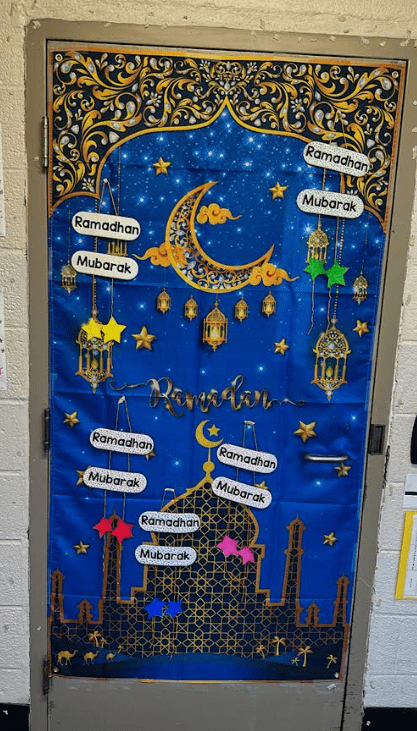 Ramadhan
Mubarak
Ramadhan
Mubarak
Ramadan
Ramadhan
Mubarak
Ramadhan
Mubarak
Ramadhan
Mubarak